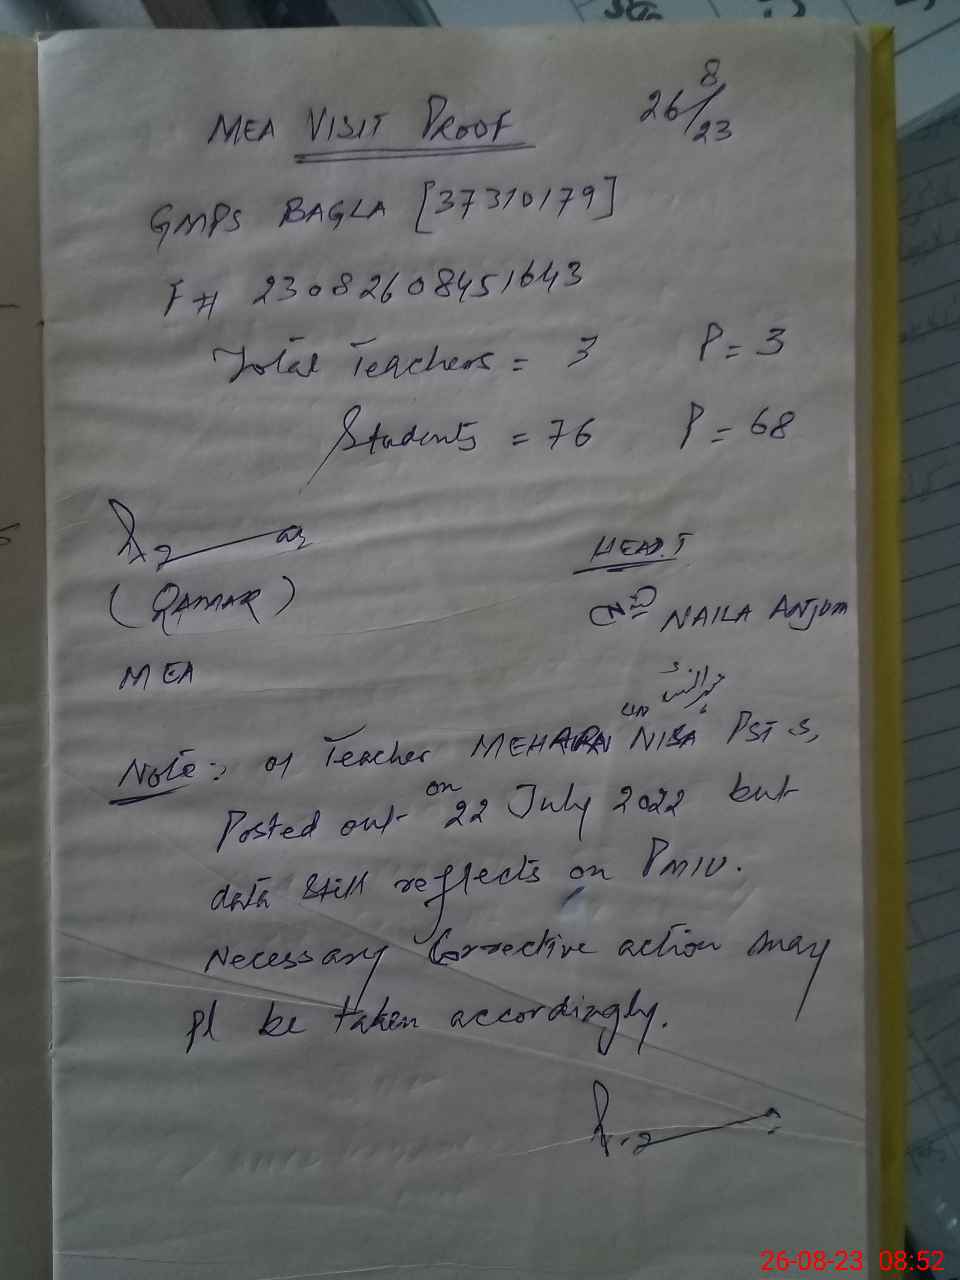 26/8/23
MEA VISIT PROOF
GMPS BAGLA [37310179]
F# 23082608451643
Total Teachers = 3 P = 3
Students = 76 P = 68
(QAMAR)
MEA
HEAD.T
NAILA ANJUM
UN
Note:, of Teacher MEHARN NISA PST S,
Posted out on 22 July 2022 but
data still reflects on PMIU.
Necessary Corrective action may
pl be taken accordingly.
26-08-23 08:52